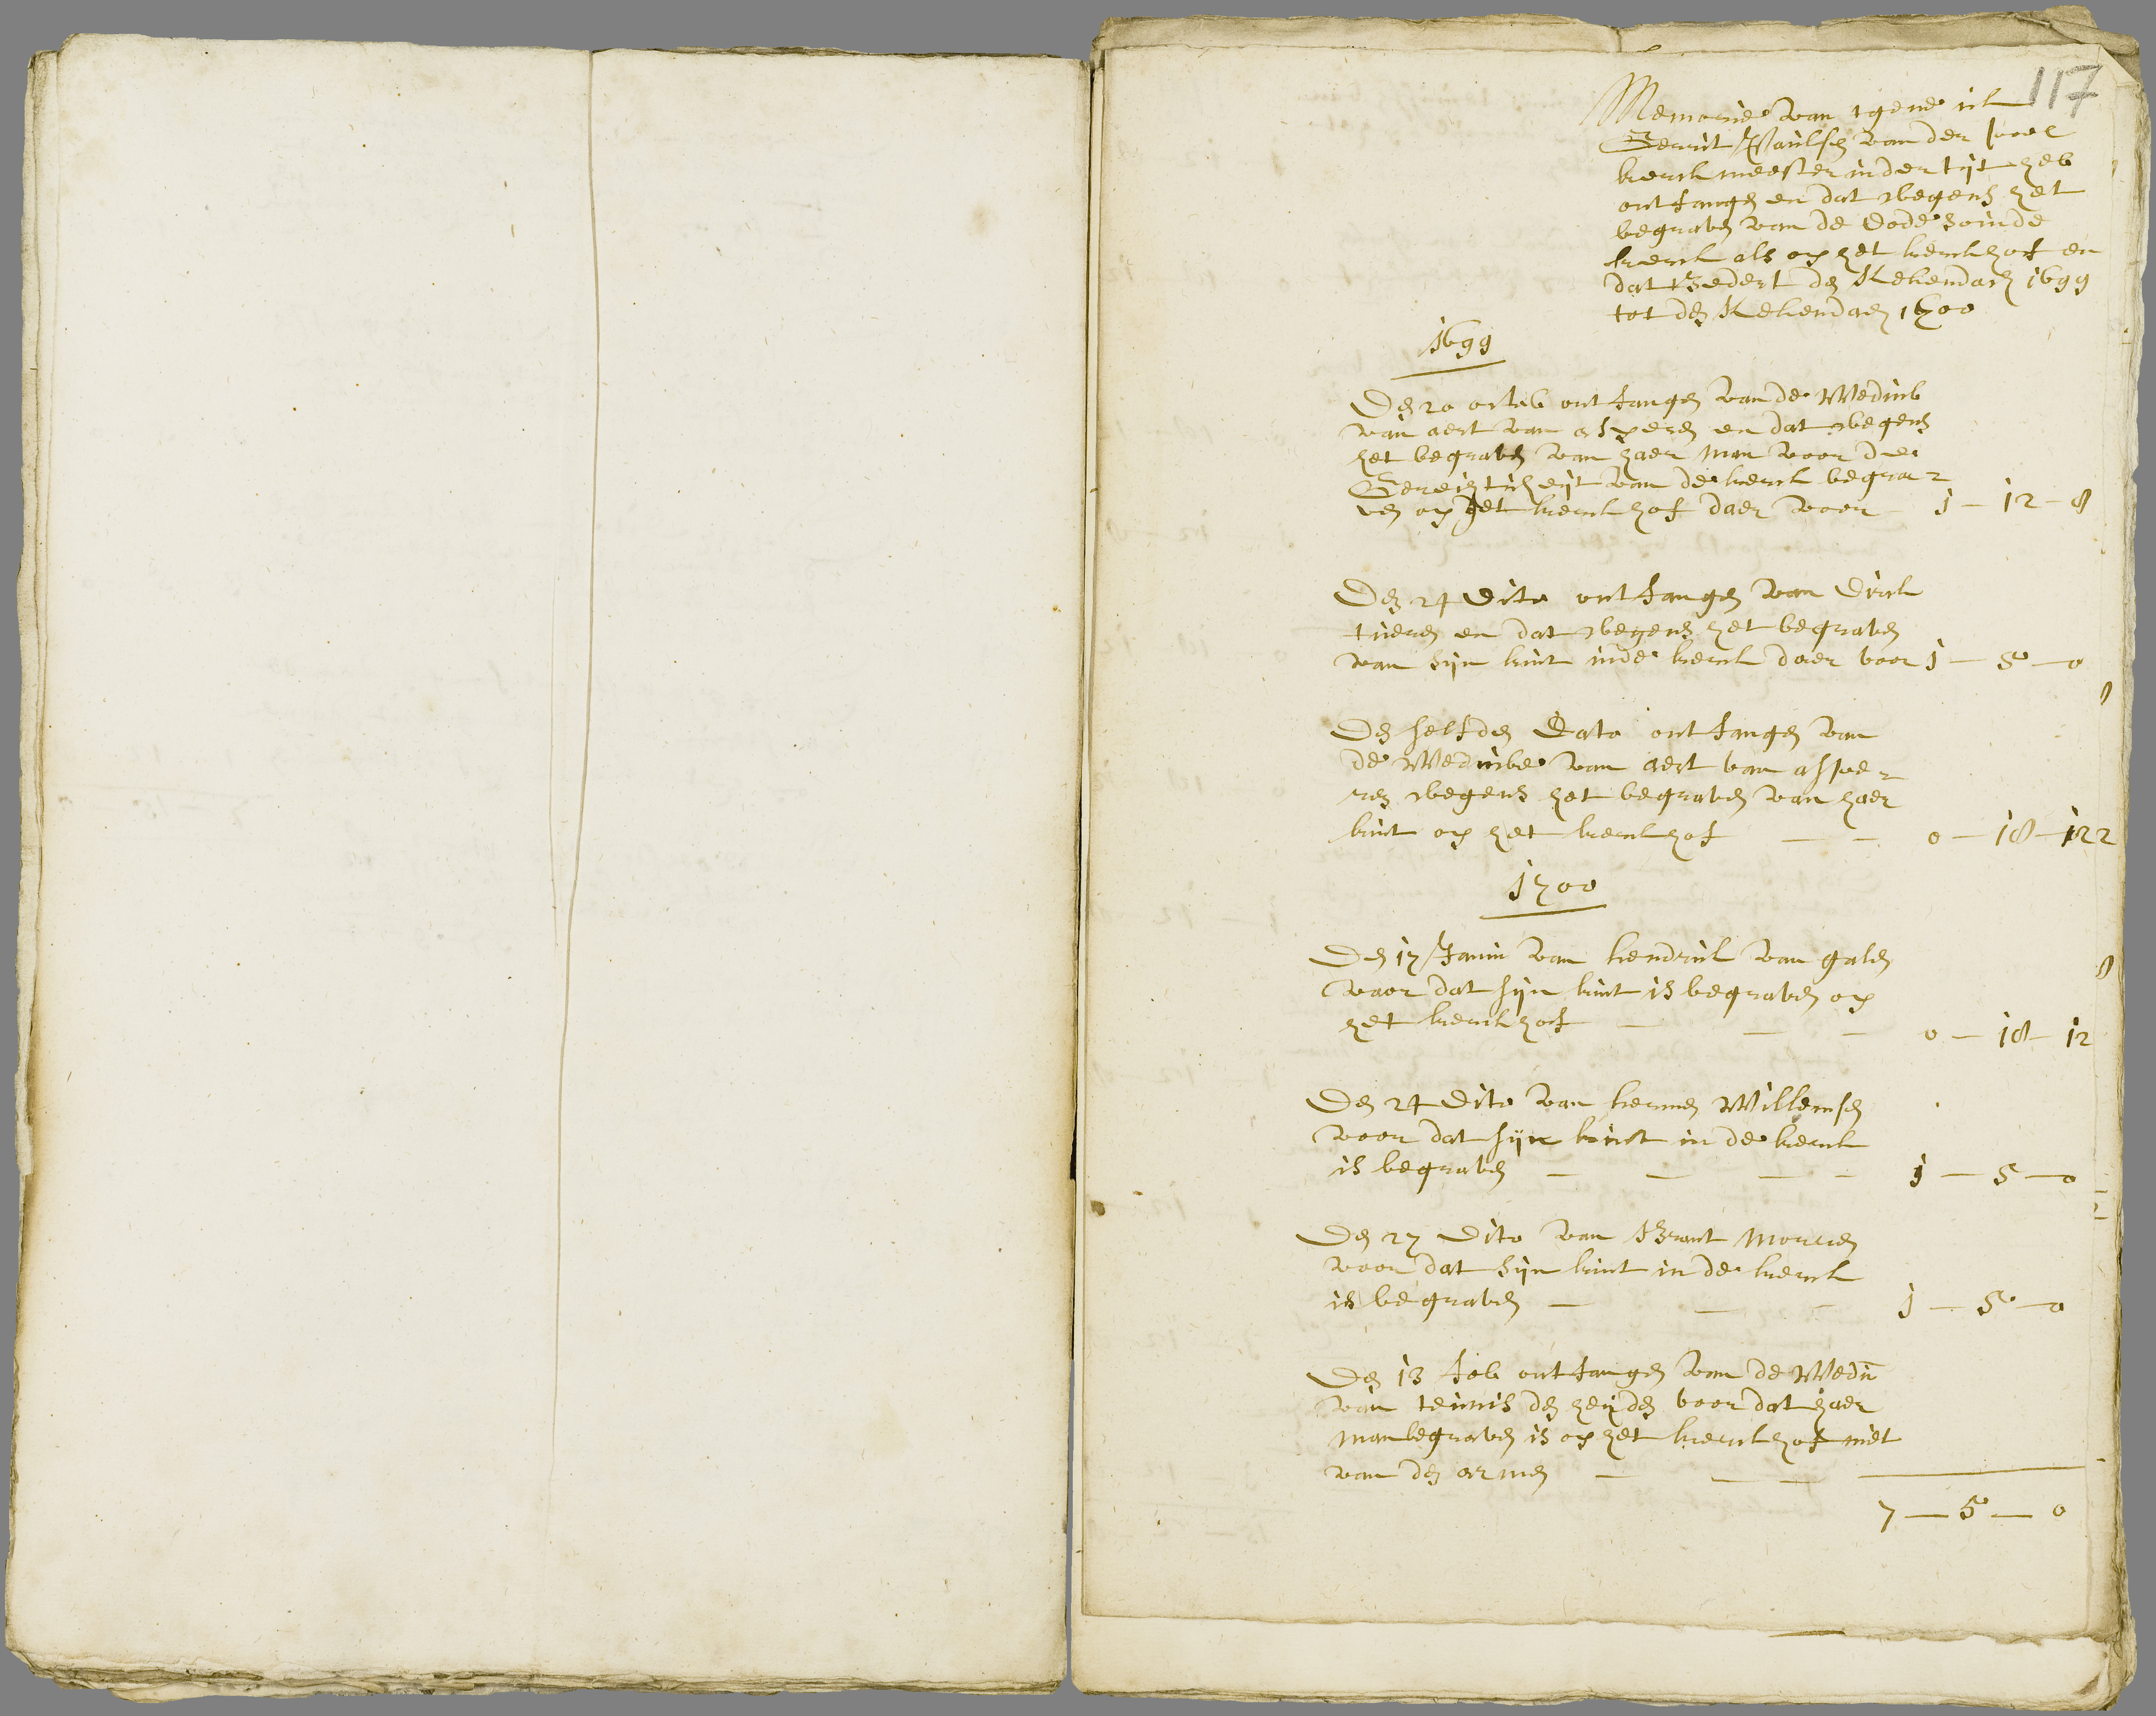 117
Memorie van tgene ick
Gerrit Paulsen van der poel
kerck meester inder tijt heb
ontfangen en dat wegens het
begraven van de dode so in de
kerck als op het kerckhof en
dat Zedert den Rekendach 1699
tot den Rekendaeg 1700
1699
Den 20 octob ontfangen van de Weduw
van aert van asperen en dat wegens
het begraven van haer man voor die
Gereichticheijt van de kerck begra-
ven op het kerckhof daer voor 1 - 12 - 8
Den 24 dito ontfangen van Dirck
en dat wegens het begraven
van sijn kint inde kerck daer voor 1 - 5 - 0
Den selfden Dato ontfangen van
de Weduwe van aert van aspe-
ren wegens het begraven van haer
kint op het kerckhof - - 0 - 18 - 12
1700
Den 17 Janu van hendrick van galen
voor dat sijn kint is begraven op
het kerckhof - - - 0 - 18 - 12
Den 24 dito van hermen Willemsen
voor dat sijn kint in de kerck
is begraven - - - - 1 - 5 - 0
Den 27 dito van Brant Morren
voor dat sijn kint in de kerck
is begraven - - - 1 - 5 - 0
Den 13 feb ontfangen van de Wedu
van teunis den heijden voor dat haer
man begraven is op het kerckhof niet
van den armen - - -
7 - 5 - 0